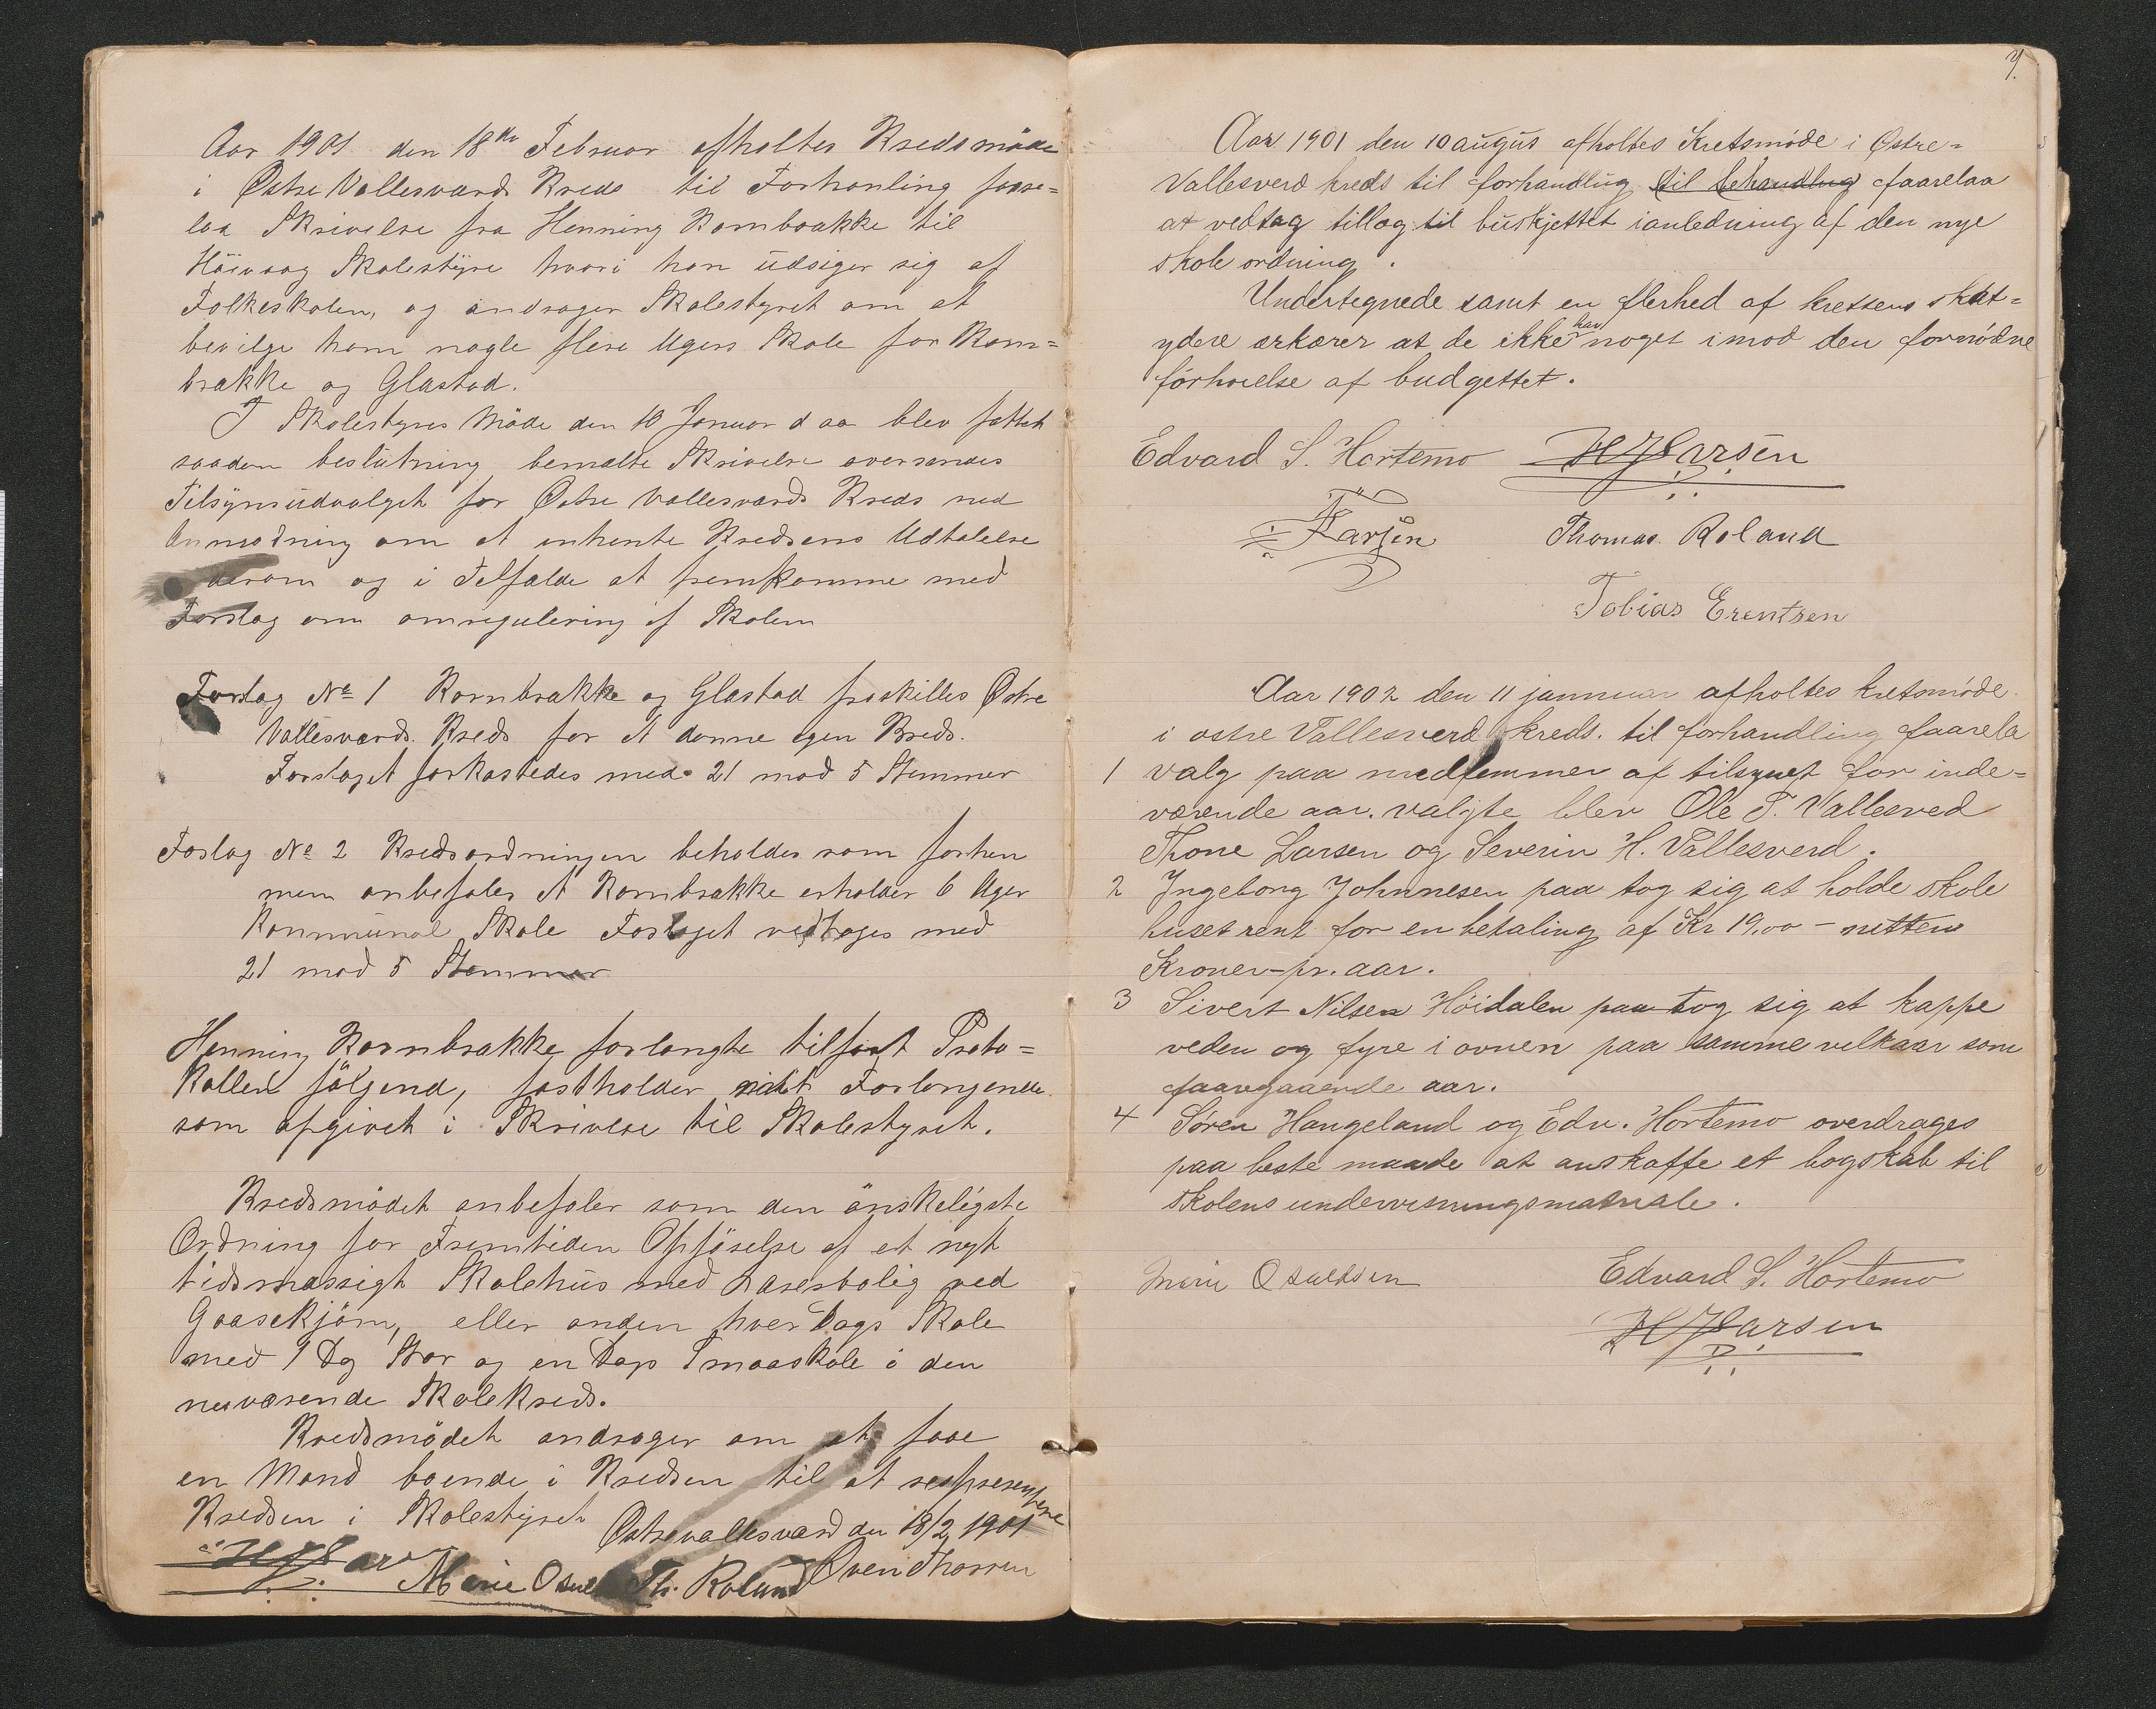 Aar 1901 den 18de Februar afholtes Kredsmöde
i Østre Vallesværds Kreds til Forhanling faare-
laa Skrivelse fra Henning Kornbrække til
Höivaag Skolestyre hvori han üdsiger sig af
Folkeskolen, og andrager Skolestyret om at
bevilge ham nogle flere Ugers Skole for Korn=
brække og Glastad.
I Skolestyres Möde den 10 Januar d aa blev fattet
saadan beslütning bemælte Skrivelse oversendes
Tilsynsüdvalget for Østre Vallesværds Kreds med
Anmodning om at enhente Kredsens Udtalelse
derom og i Telfælde at fremkomme med
Forslag om omregulering af Skolen
Forslag No 1 Kornbrække og Glastad fraskilles Østre
Vallesværds Kreds for at danne egen Kreds.
Forslaget forkastedes med 21 mod 5 Stemmer
Foslag No 2 Kredsordningen beholdes som förhen
men anbefales at Kornbrække erholder 6 Uger
Kommünal Skole Foslaget vedtages med
21 mod 5 Stemmer
Henning Kornbrække forlangte tilført Proto=
kollen fölgend, fastholder mit Forlangende
som opgivet i Skrivese til Skolestyret.
Kredsmödet anbefaler som den önskeligste
Ordning for Fremtiden Opförelse af et nyt
tidsmæssigt Skolehüs med Lærerbolig ved
Gaasekjærn, eller anden hver Dags Skole
med 1 Dg Stor og en Dags Smaaskole i den
nuværende Skolekreds.
Kredsmödet andrager om at faae
en Mand boende i Kredsen til at respresentere
Kredsen i Skolestyret
Østrevallesværd den 18/2 1901
Marie Osul Th. Roland Øven Thorsen
7.
Aar 1901 den 10 augüs afholtes Kretsmøde i Østre=
Vallesverd kreds til forhandlüg til behandlug faarelaa
at vedtag tillæg til büskjettet i anledning af den nye
skole ordning.
Undertegnede samt en flerhed af kretsens skat=
ydere ærkærer at de ikke har noget imod den fornødne
förhøielse af budgettet.
Edvard S. Hortemo H J Larsen
Larsen Thomas Roland
Tobias Erentsen
Aar 1902 den 11 jannuar afholtes kretsmøde
i østre Vallesverd kreds. til forhandling faarela
1 valg paa medlemmer af tilsynet for inde=
værende aar. valgte blev Ole T. Vallesved
Thone Larsen og Severin H. Vallesverd.
2 Ingeborg Johnnesen paa tog sig at holde skole
huset rent for en betaling af Kr 19.00 – nitten
Kroner – pr. aar.
3 Sivert Nilsen Höidalen paa tog sig at kappe
veden og fyre i ovnen paa samme velkaar som
faaregaaende aar.
4 Søren Haugeland og Edv. Hortemo overdrages
paa beste maade at anskaffe et bogskab til
skolens undervisningsmatriale.
Marie Osuldsen Edvard S. Hortemo
H J Larsen